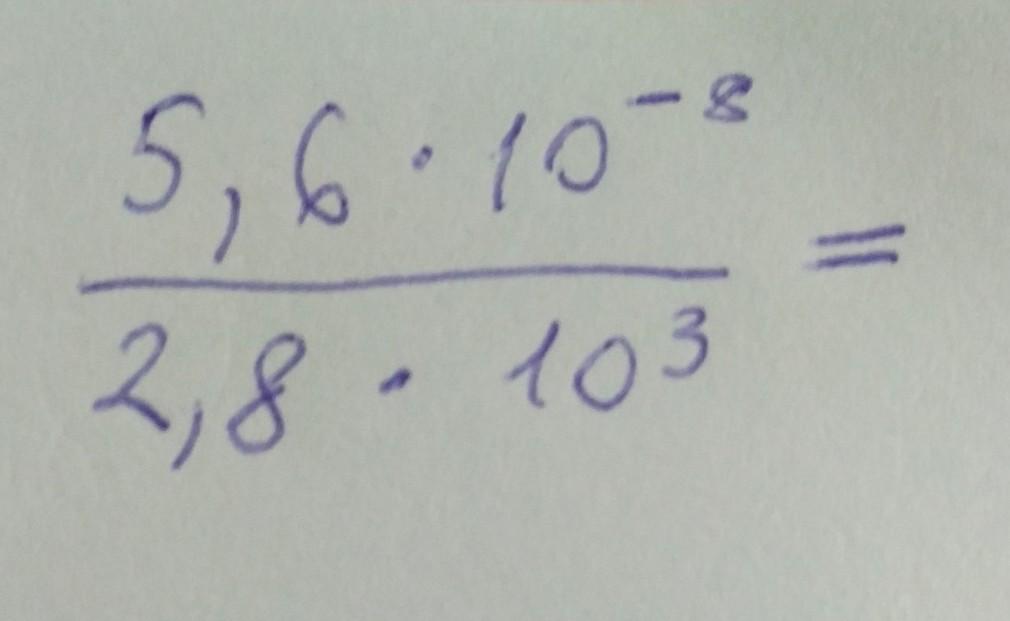 5,6 · 10⁻⁸
2,8 · 10³ =